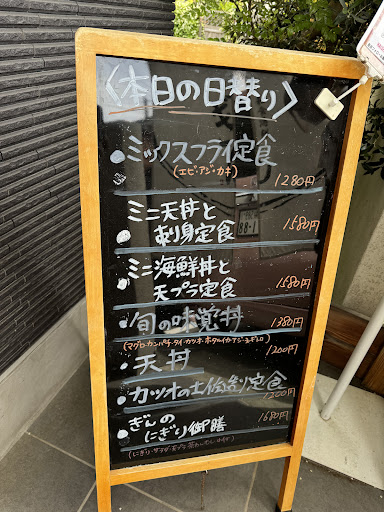 〈本日の日替り〉
・ミックスフライ定食
(エビ・アジ・カキ)
1280円
・ミニ天丼と
刺身定食
1580円
・ミニ海鮮丼と
天プラ定食
1580円
・旬の味覚丼
1380円
(マグロ・カンパチ・タイ・カツオ・ホタルイカ・アジ・
・天丼
1200円
・カツオの土佐造り定食
1200円
・ぎんの
にぎり御膳
1680円
(にぎり・サラダ・天プラ
88-1